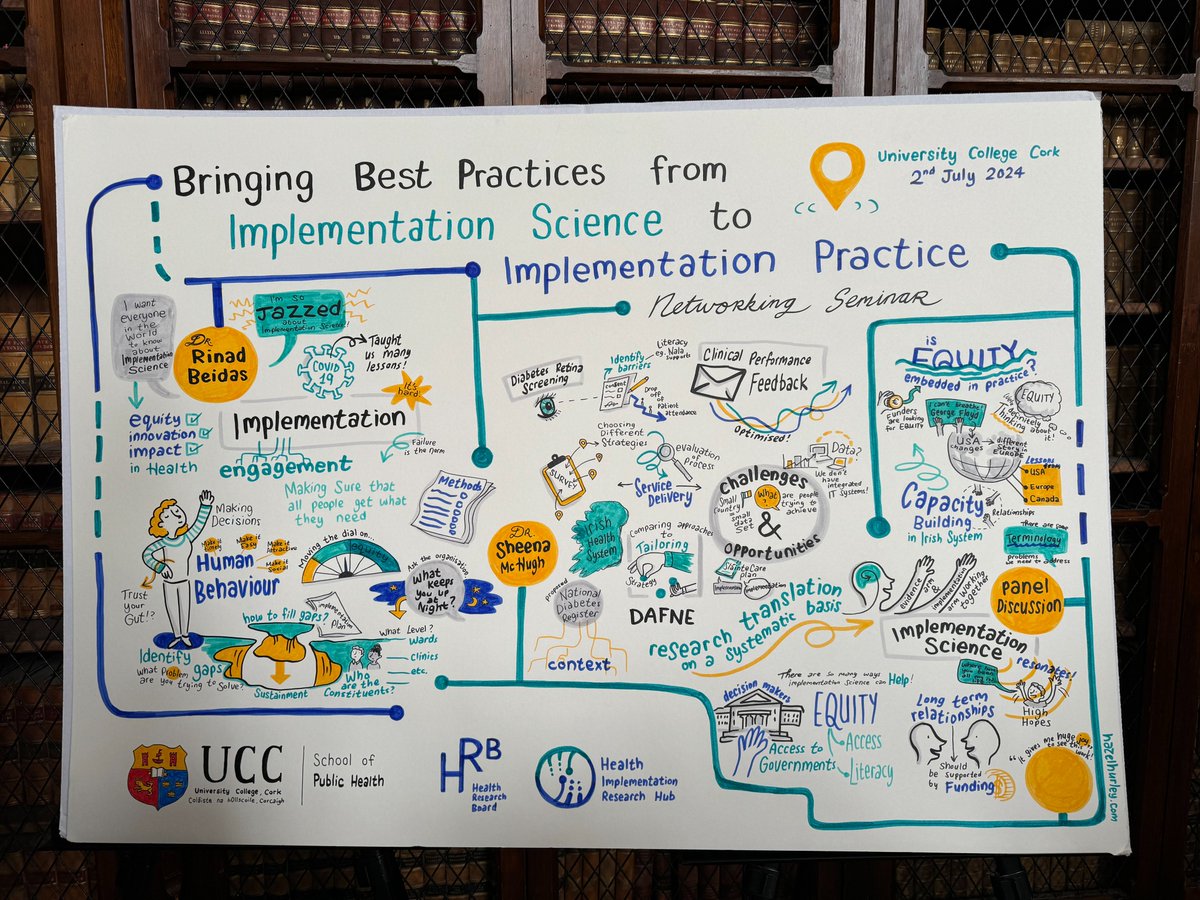 Bringing Best Practices from
Implementation Science to
Implementation Practice
Networking Seminar
University College Cork
2nd July 2024
I want
everyone
in the
World
to know
about
Implementation
Science
Dr.
Rinad
Beidas
I'm so
Jazzed
about
Implementation Science!!
COVID
19
Taught
us many
lessons!
It's
hard!
equity
innovation
impact
in Health
Implementation
engagement
Failure
is the norm
Making Sure that
all people get what
they need
Methods
Making
Decisions
Human
Behaviour
Make it
timely
Make it
Easy
Make it
Attractive
Make it
Social
Trust
your
Gut!?
Moving the dial on...
Ask the organisation
What
keeps
you up
at
Night?
how to fill gaps?
Implementation
Plan
Identify
gaps
What Problem
are you trying to Solve?
Sustainment
What Level?
Wards
clinics
etc.
Who
are the
Constituents?
Diabetes Retina
Screening
Identify
barriers
Literacy
eg. Nala
Supports
consent
Drop
off of
Patient
attendance
Clinical Performance
Feedback
Optimised!
Choosing
Different
Strategies
SURVEY
evaluation
of
Process
Service
Delivery
Data?
We don't
have
integrated
IT Systems!
Challenges
&
Opportunities
Small
Country
=
small
data
Set
What?
are people
trying to
achieve
Dr.
Sheena
McHugh
Irish
Health
System
Comparing approaches
to
Tailoring
Strategy
proposed
National
Diabetes
Register
context
DAFNE
SláinteCare
implementation
research translation
on a Systematic basis
evidence
arm
&
implementation
arm Working
together
is
EQUITY
embedded in practice?
Funders
are looking
for EQUITY
I can't breathe!
George Floyd
EQUITY
definitely
thinking
about it!
USA →
changes
different
Story in
EUROPE
lessons
from
USA
Europe
Canada
Relationships
Capacity
Building...
in Irish System
There are some
Terminology
problems
we need to address
Panel
Discussion
Implementation
Science
resonates!
High
Hopes
There are so many ways
implementation Science can Help!
decision makers
EQUITY
Access
Literacy
Access to
Governments
Long term
relationships
should
be supported
by Funding
"it gives me huge joy
to see this work!
hazelhurley.com
UCC
University College, Cork
Coláiste na hOllscoile, Corcaigh
School of
Public Health
HRB
Health
Research
Board
Health
Implementation
Research Hub